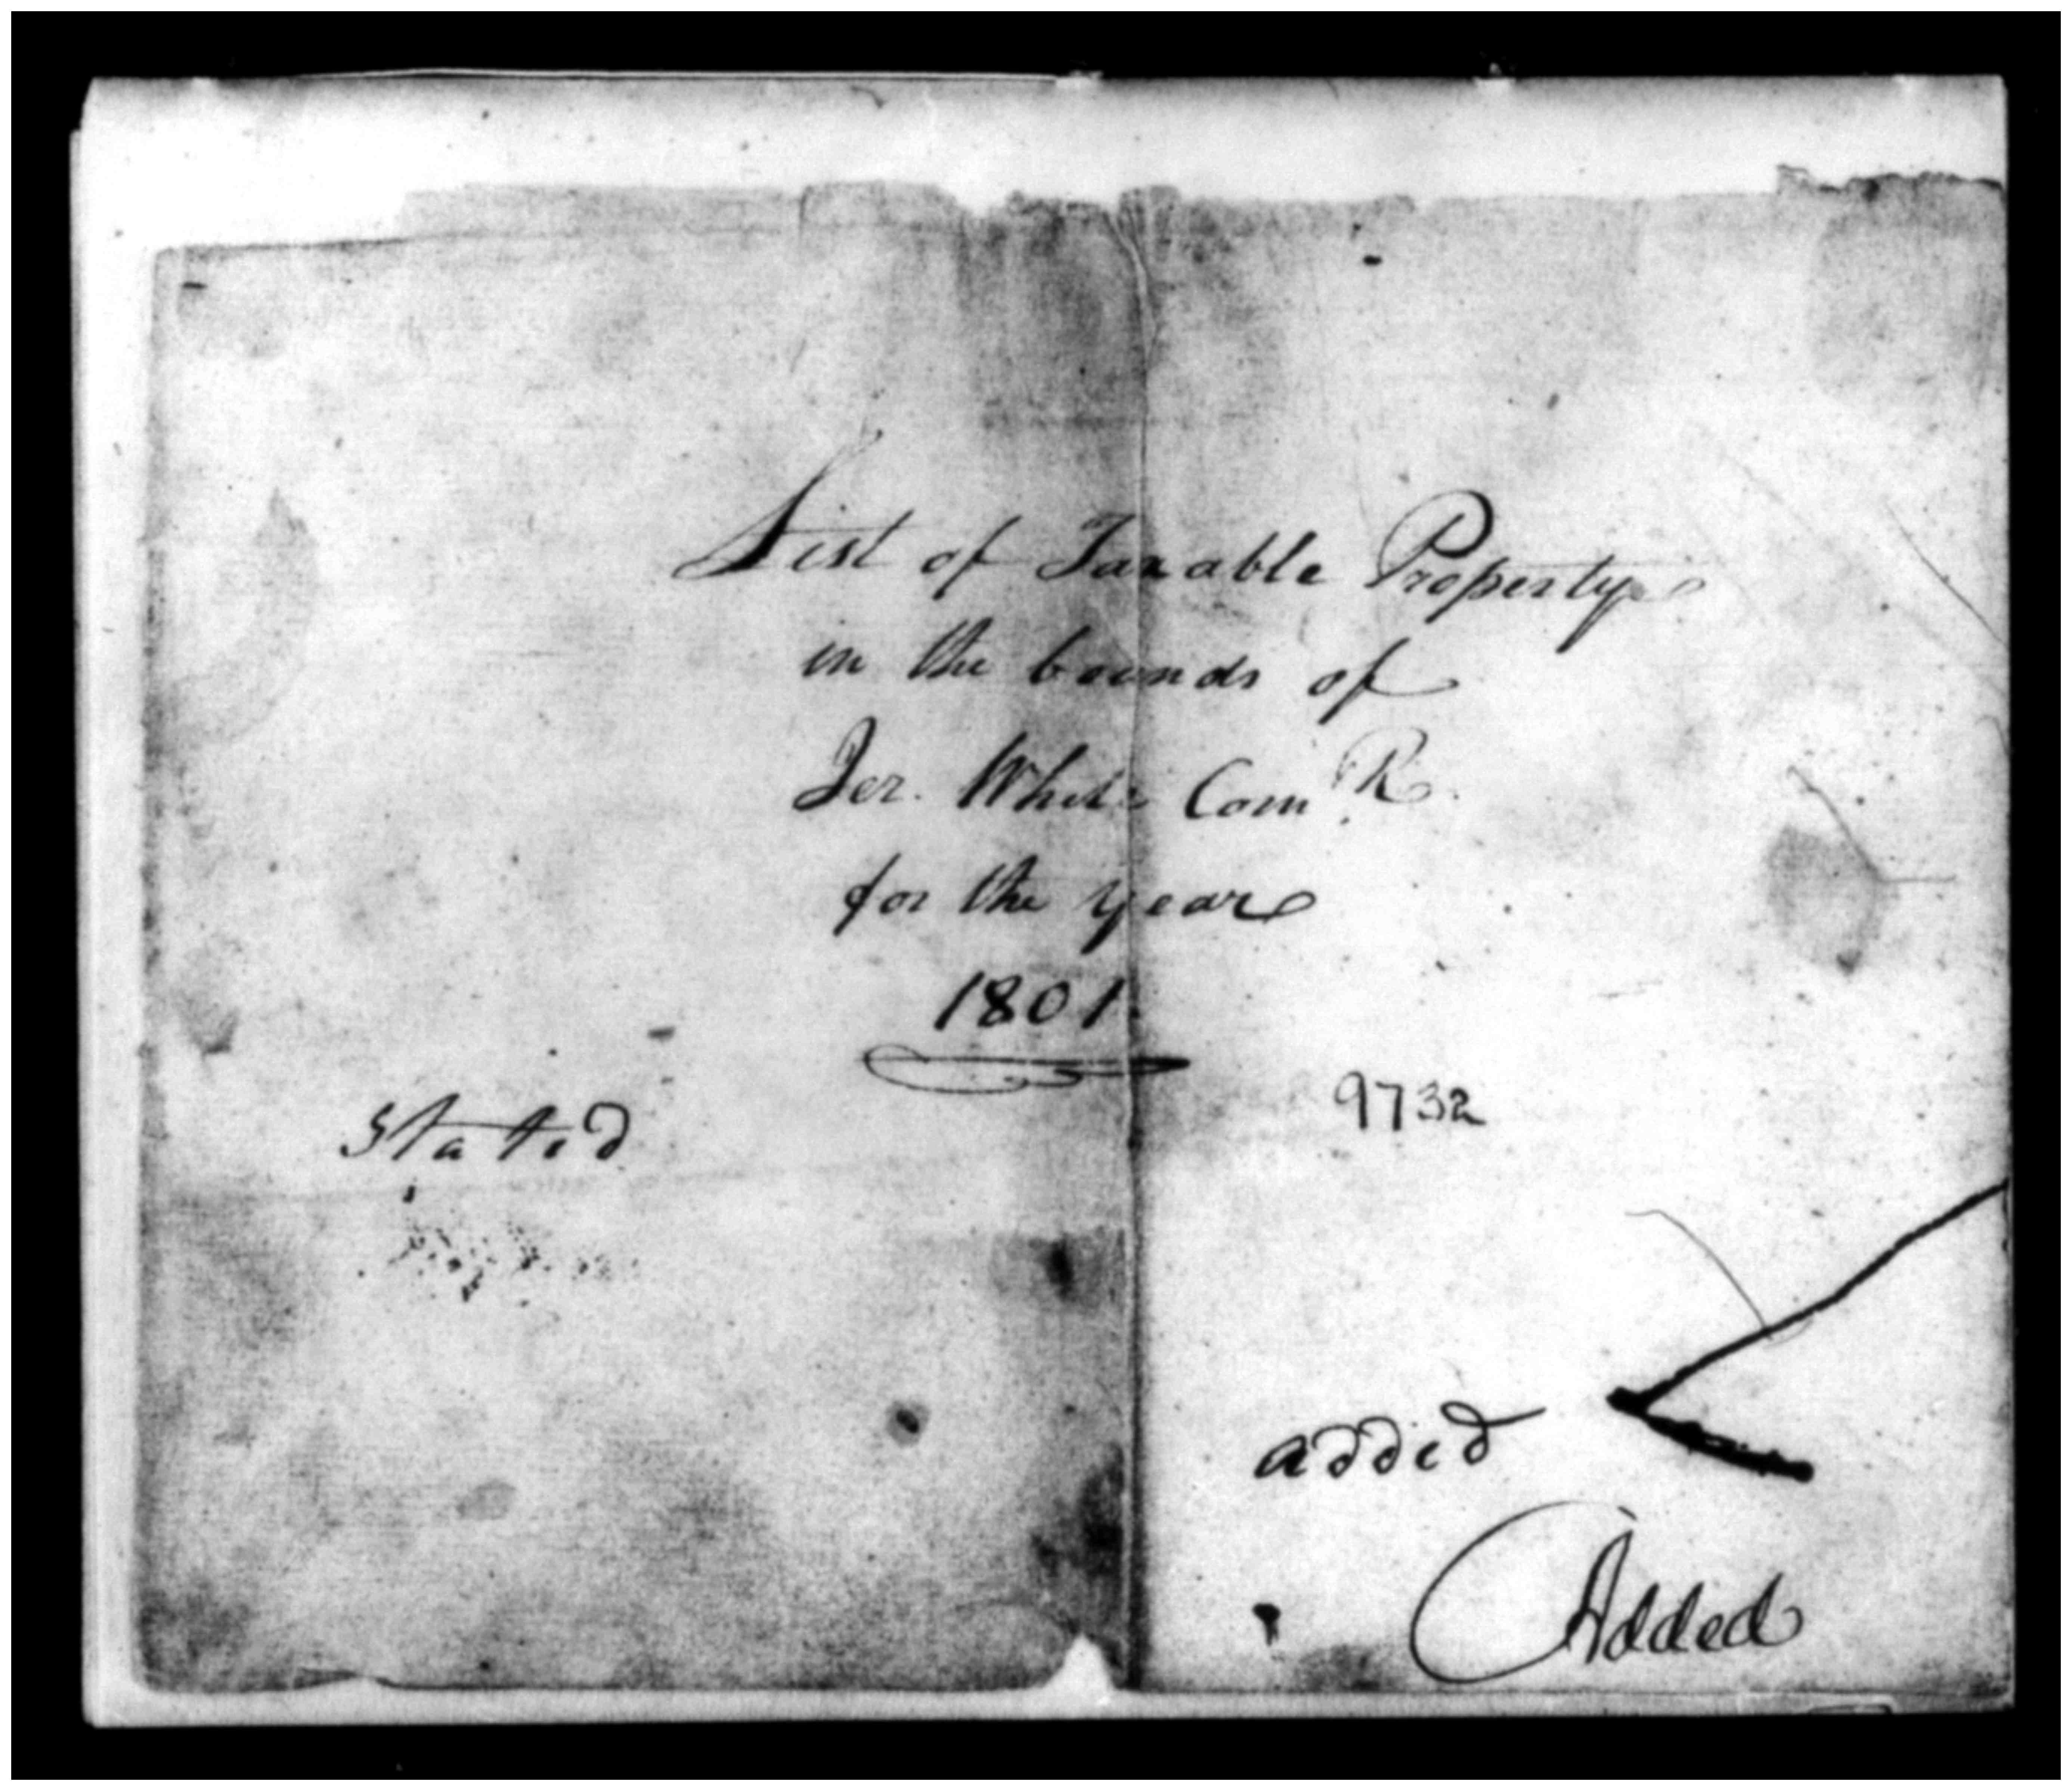 List of Taxable Property
in the bounds of
Jer. White Com R.
for the year
1801
9732
Stated
added
Added